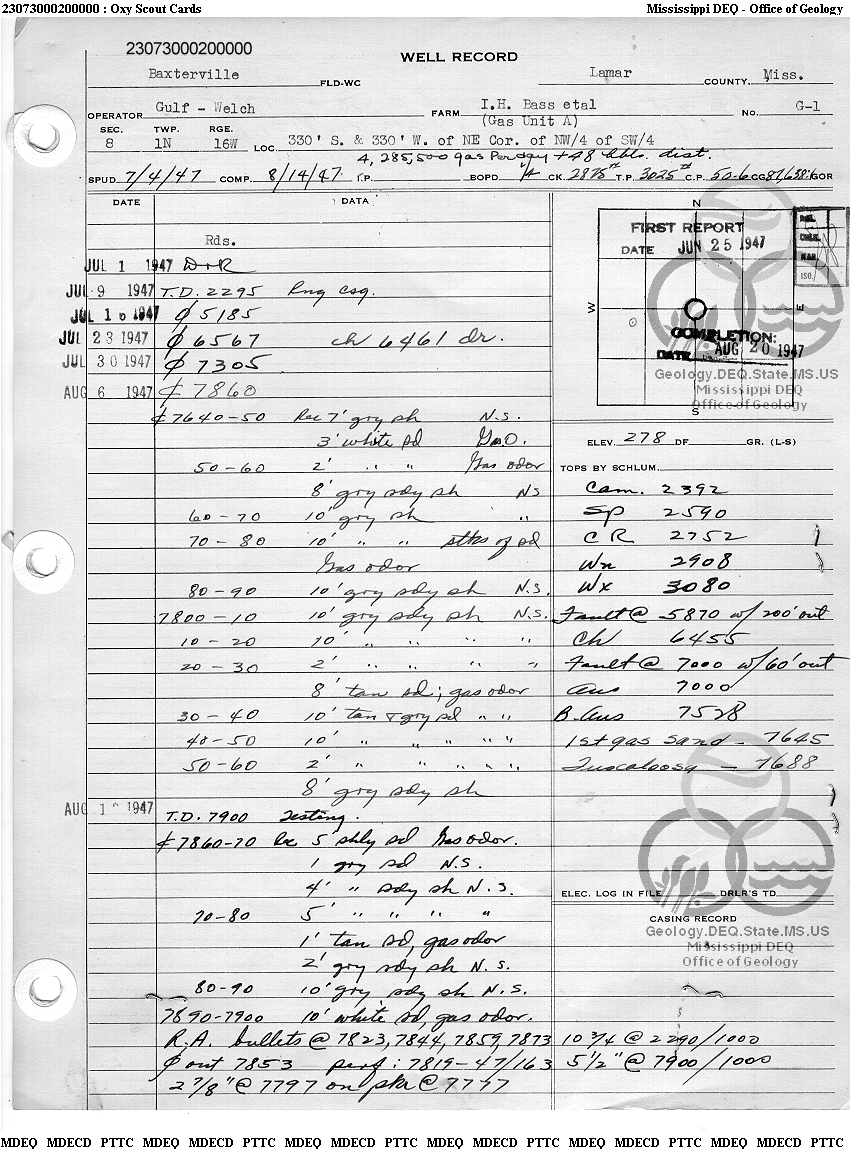 23073000200000 : Oxy Scout Cards Mississippi DEQ - Office of Geology
23073000200000
WELL RECORD
Baxterville FLD-WC Lamar COUNTY, Miss.
OPERATOR Gulf - Welch FARM I.H. Bass etal NO. G-1
(Gas Unit A)
SEC. TWP. RGE.
8 1N 16W LOC. 330' S. & 330' W. of NE Cor. of NW/4 of SW/4
4,285,500 gas Per day + 48 bbls. dist.
SPUD 7/4/47 COMP. 8/14/47 I.P. BOPD CK. 2875# T.P. 3025# C.P. 50.6 CG 87,638:1 GOR
DATE DATA
Rds.
JUL 1 1947 D+R
JUL 9 1947 T.D. 2295 Rng csg.
JUL 16 1947 ϕ 5185
JUL 23 1947 ϕ 6567 ch 6461 dr.
JUL 30 1947 ϕ 7305
AUG 6 1947 ¢ 7860
¢ 7640-50 Rec 7' gry sh N.S.
3' white sd G&O.
50-60 2' " " Gas odor
8' gry sdy sh NS
60-70 10' gry sh "
70-80 10' " " stks of sd
Gas odor
80-90 10' gry sdy sh N.S.
7800-10 10' gry sdy sh N.S.
10-20 10' " " " "
20-30 2' " " " "
8' tan sd; gas odor
30-40 10' tan & gry sd " "
40-50 10' " " " " "
50-60 2' " " " " "
8' gry sdy sh
AUG 1 1947 T.D. 7900 Testing.
¢ 7860-70 Rec 5' shly sd Gas odor.
1 gry sd N.S.
4' " sdy sh N.S.
70-80 5' " " " "
1' tan sd, gas odor
2' gry sdy sh N.S.
80-90 10' gry sdy sh N.S.
7890-7900 10' white sd, gas odor.
R.A. bullets @ 7823, 7844, 7859, 7873
ϕ out 7853 perf: 7819-47/163
2 7/8" @ 7797 on pkr @ 7777
N
FIRST REPORT
DATE JUN 25 1947
REL.
CHLK.
MAP.
ISO.
W E
COMPLETION:
DATE AUG 20 1947
S
Geology.DEQ.State.MS.US
Mississippi DEQ
Office of Geology
ELEV. 278 DF GR. (L-S)
TOPS BY SCHLUM.
Cam. 2392
Sp 2590
CR 2752
Wn 2908
Wx 3080
Fault @ 5870 w/ 200' out
Ch 6455
Fault @ 7000 w/60' out
Aus 7000
B. Aus 7528
1st gas sand - 7645
Tuscaloosa - 7688
ELEC. LOG IN FILE DRLR'S TD
CASING RECORD
Geology.DEQ.State.MS.US
Mississippi DEQ
Office of Geology
10 3/4 @ 2290/1000
5 1/2" @ 7900/1000
MDEQ MDECD PTTC MDEQ MDECD PTTC MDEQ MDECD PTTC MDEQ MDECD PTTC MDEQ MDECD PTTC MDEQ MDECD PTTC